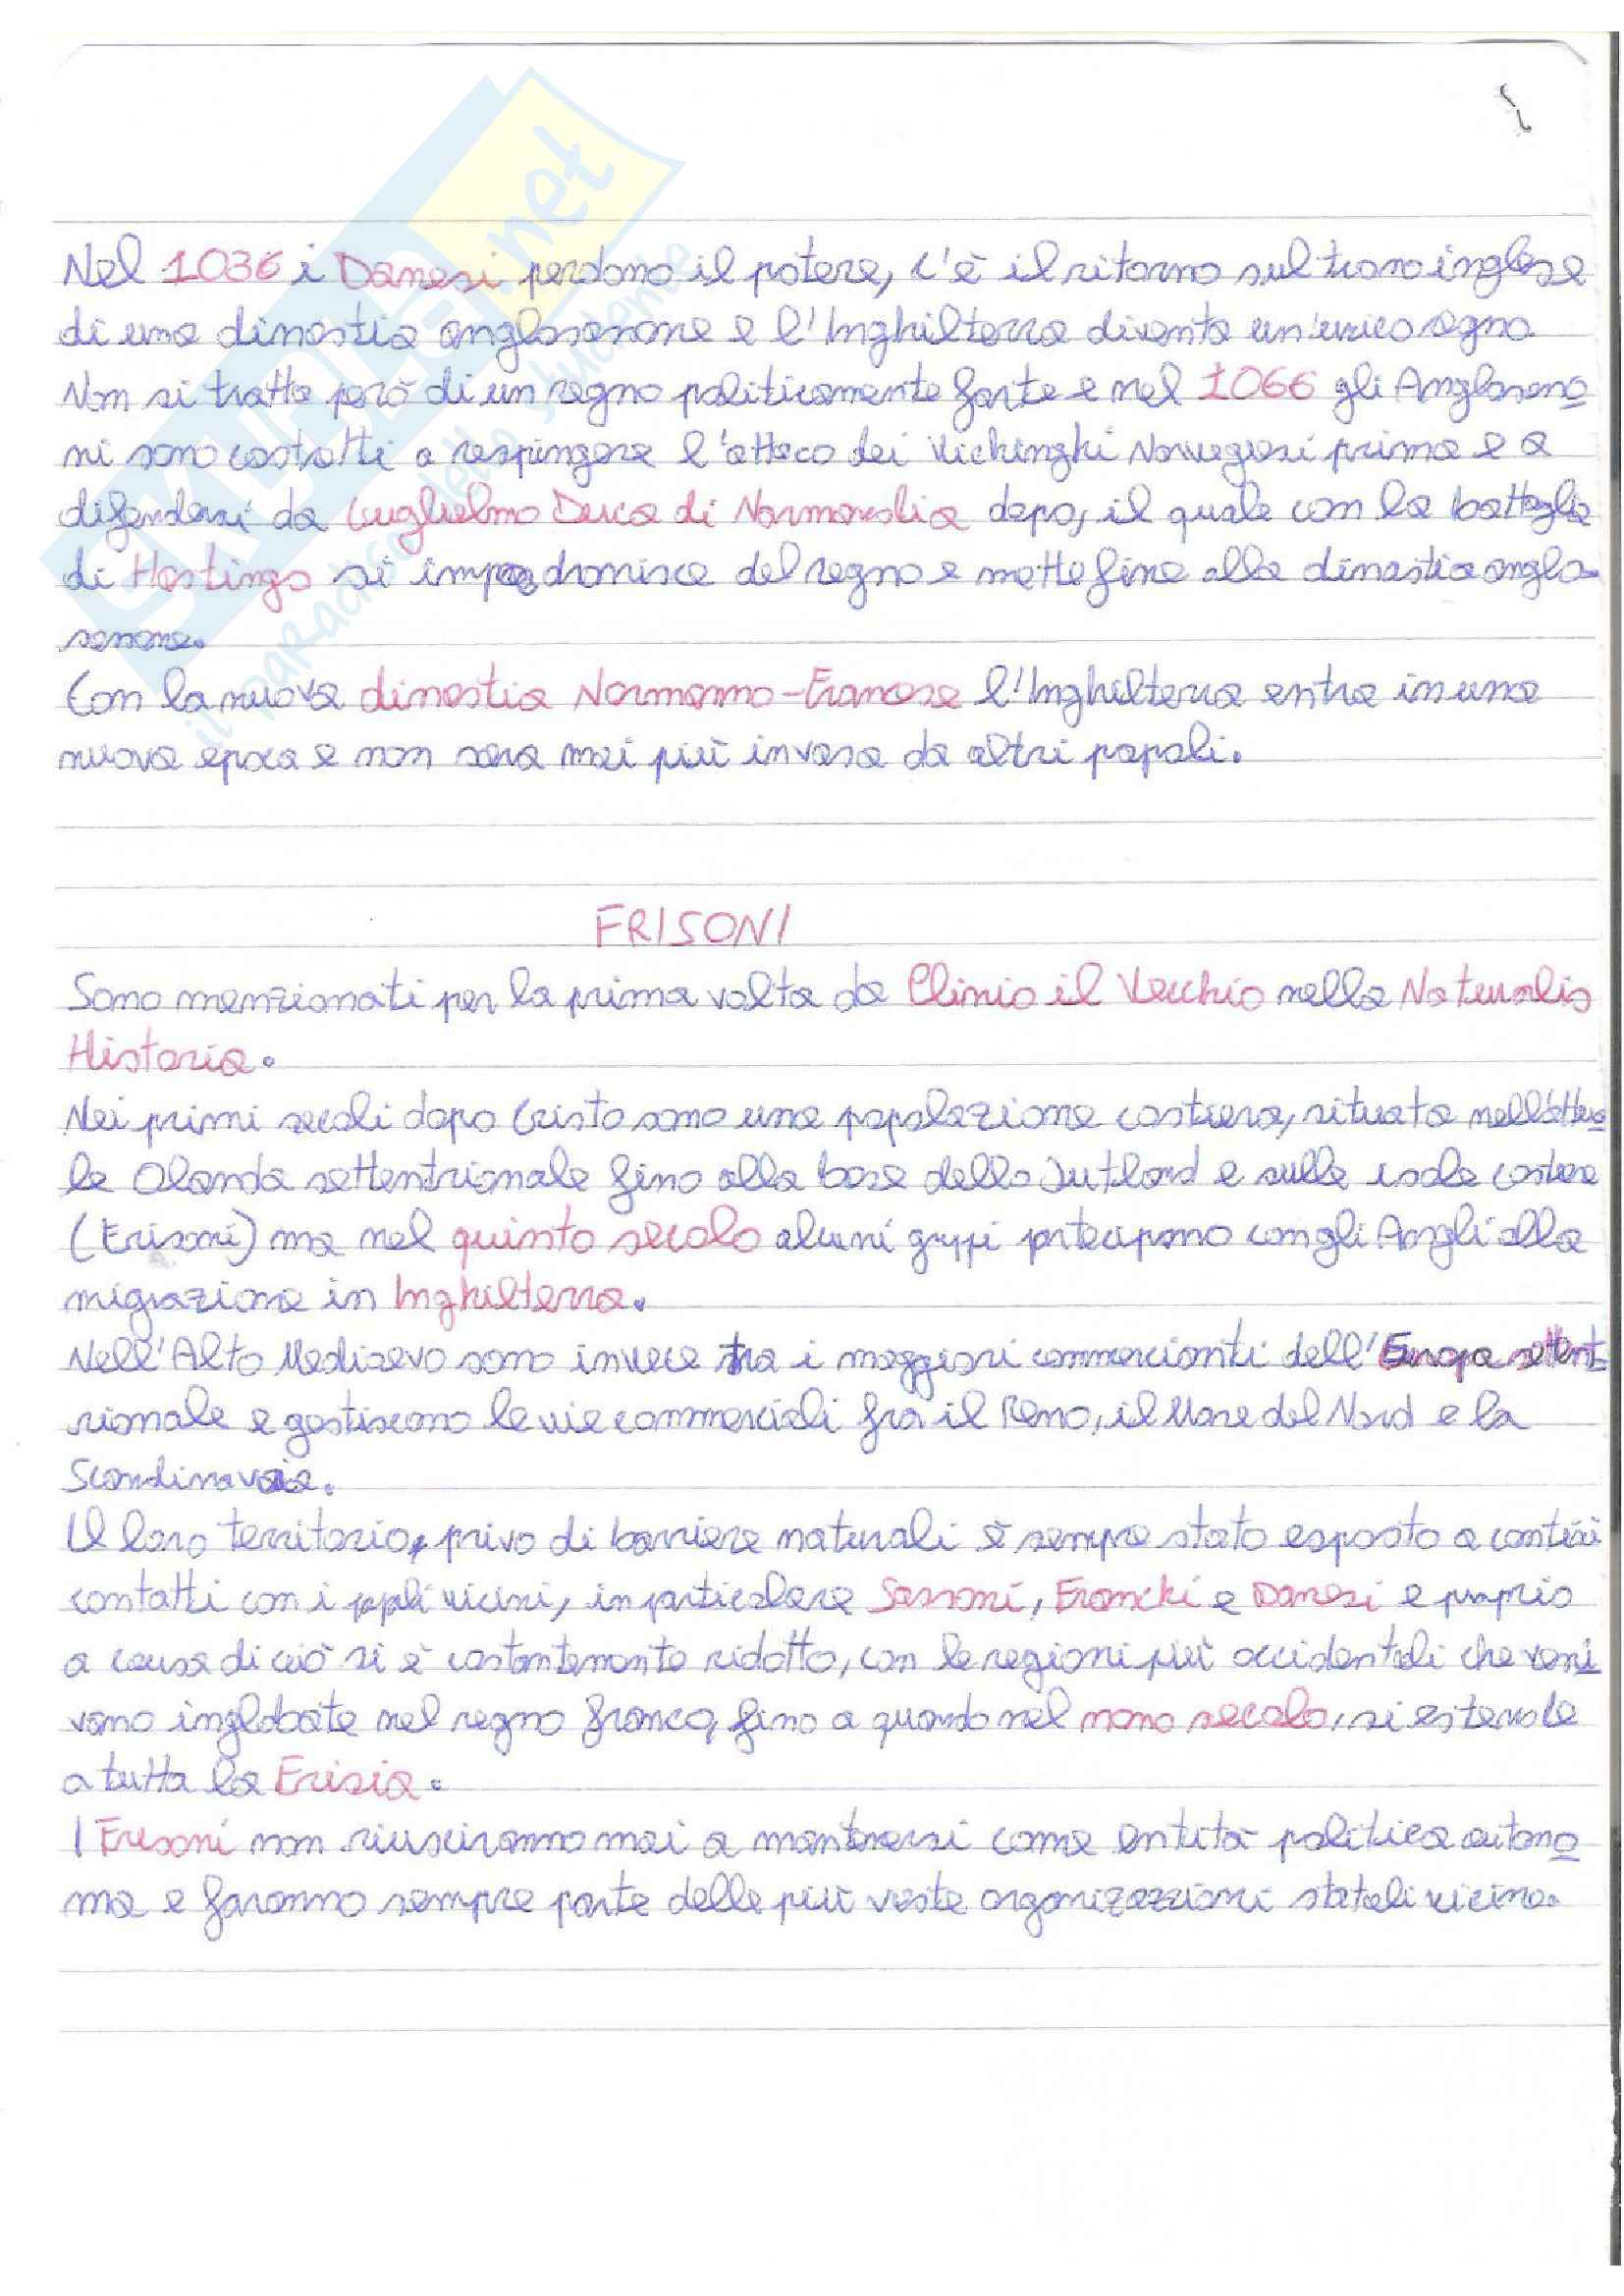 SKUOLA.net
il paradiso dello studente
Nel 1036 i Danesi perdono il potere, c'è il ritorno sul trono inglese
di una dinastia anglosassone e l'Inghilterra diventa un'unico regno
Non si tratta però di un regno politicamente forte e nel 1066 gli Anglosasso
ni sono costretti a respingere l'attacco dei Vichinghi Norvegesi prima e a
difendersi da Guglielmo Duca di Normandia dopo, il quale con la battaglia
di Hastings si impadronisce del regno e mette fine alla dinastia anglo-
sassone.
Con la nuova dinastia Normanno-Francese l'Inghilterra entra in una
nuova epoca e non sarà mai più invasa da altri popoli.
FRISONI
Sono menzionati per la prima volta da Plinio il Vecchio nella Naturalis
Historia.
Nei primi secoli dopo Cristo sono una popolazione costiera, situata nell'attua
le Olanda settentrionale fino alla base dello Jutland e sulle isole costiere
(Frisoni) ma nel quinto secolo alcuni gruppi partecipano con gli Angli alla
migrazione in Inghilterra.
Nell'Alto Medioevo sono invece tra i maggiori commercianti dell'Europa settent
rionale e gestiscono le vie commerciali fra il Reno, il Mare del Nord e la
Scandinavia.
Il loro territorio, privo di barriere naturali è sempre stato esposto a
contatti con i popoli vicini, in particolare Sassoni, Franchi e Danesi e proprio
a causa di ciò si è costantemente ridotto, con le regioni più occidentali che veni
vano inglobate nel regno franco, fino a quando nel nono secolo, si estende
a tutta la Frisia.
I Frisoni non riusciranno mai a mantenersi come entità politica autono
ma e faranno sempre parte delle più vaste organizzazioni statali vicine.